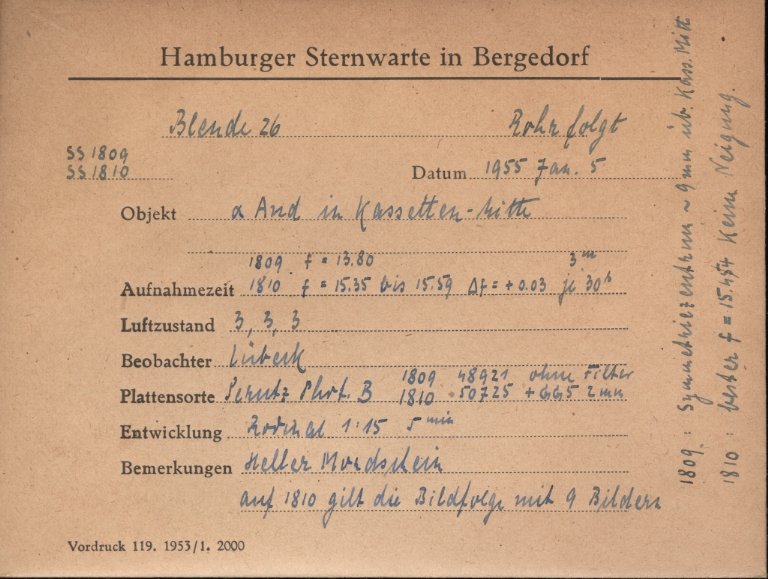 Hamburger Sternwarte in Bergedorf
Blende 26 Rohr folgt
SS 1809
SS 1810
Datum 1955 Jan. 5
Objekt α And in Kassetten-Mitte
1809 f = 13.80 3ᵐ
Aufnahmezeit 1810 f = 15.35 bis 15.59 Δf = +0.03 je 30ˢ
Luftzustand 3, 3, 3
Beobachter Lübeck
Plattensorte Perutz Phot. B 1809 48921 ohne Filter
1810 50725 + GG5 2mm
Entwicklung Rodinal 1:15 5 min
Bemerkungen Heller Mondschein
auf 1810 gilt die Bildfolge mit 9 Bildern
Vordruck 119. 1953/1. 2000
1809: Symmetriezentrum ~ 9mm üb. Kass. Mitt
1810: bester f = 15.454 Keine Neigung.